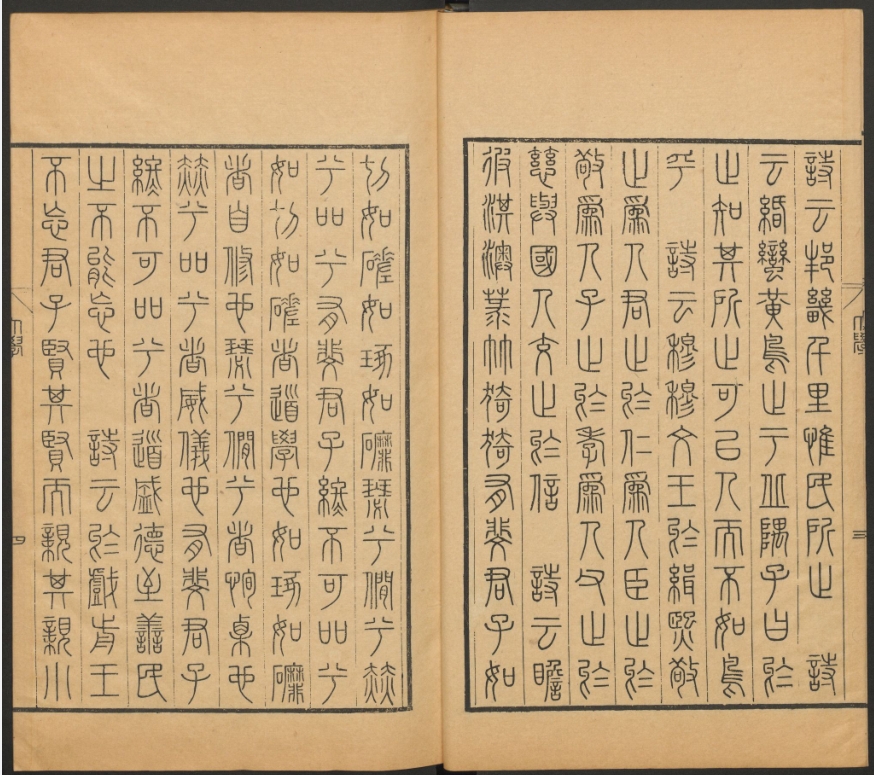 詩云邦畿千里惟民所止　詩
云緡蠻黃鳥止于丘隅子曰於
止知其所止可㠯人而不如鳥
乎　詩云穆穆文王於緝熙敬
止爲人君止於仁爲人臣止於
敬爲人子止於孝爲人父止於
慈與國人交止於信　詩云瞻
彼淇澳菉竹猗猗有斐君子如
大學
三
切如磋如琢如磨瑟兮僩兮赫
兮吅兮有斐君子終不可吅兮
如切如磋者道學也如琢如磨
者自修也瑟兮僩兮者恂慄也
赫兮吅兮者威儀也有斐君子
終不可吅兮者道盛德至善民
之不能忘也　詩云於戲前王
不忘君子賢其賢而親其親小
大學
四